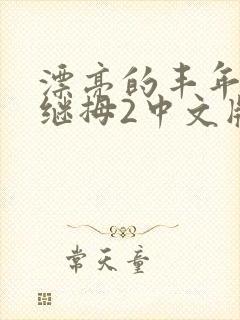 漂亮的丰年
继拇2中文版
常天童